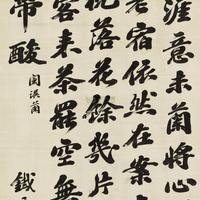 涯意未蘭將心
宿依然在案
枕落花餘幾片
客来茶罷空無
帶酸
鐵